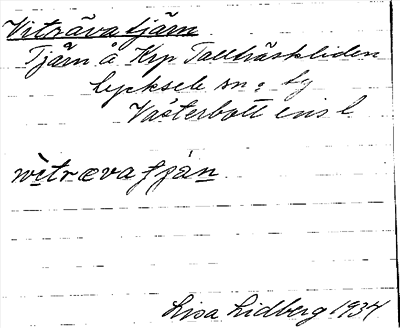 Viträvatjärn
Tjärn å Krp Tallträskliden
Lycksele sn; Lg
Västerbottens l
witrævatjän
Lisa Lidberg 1937